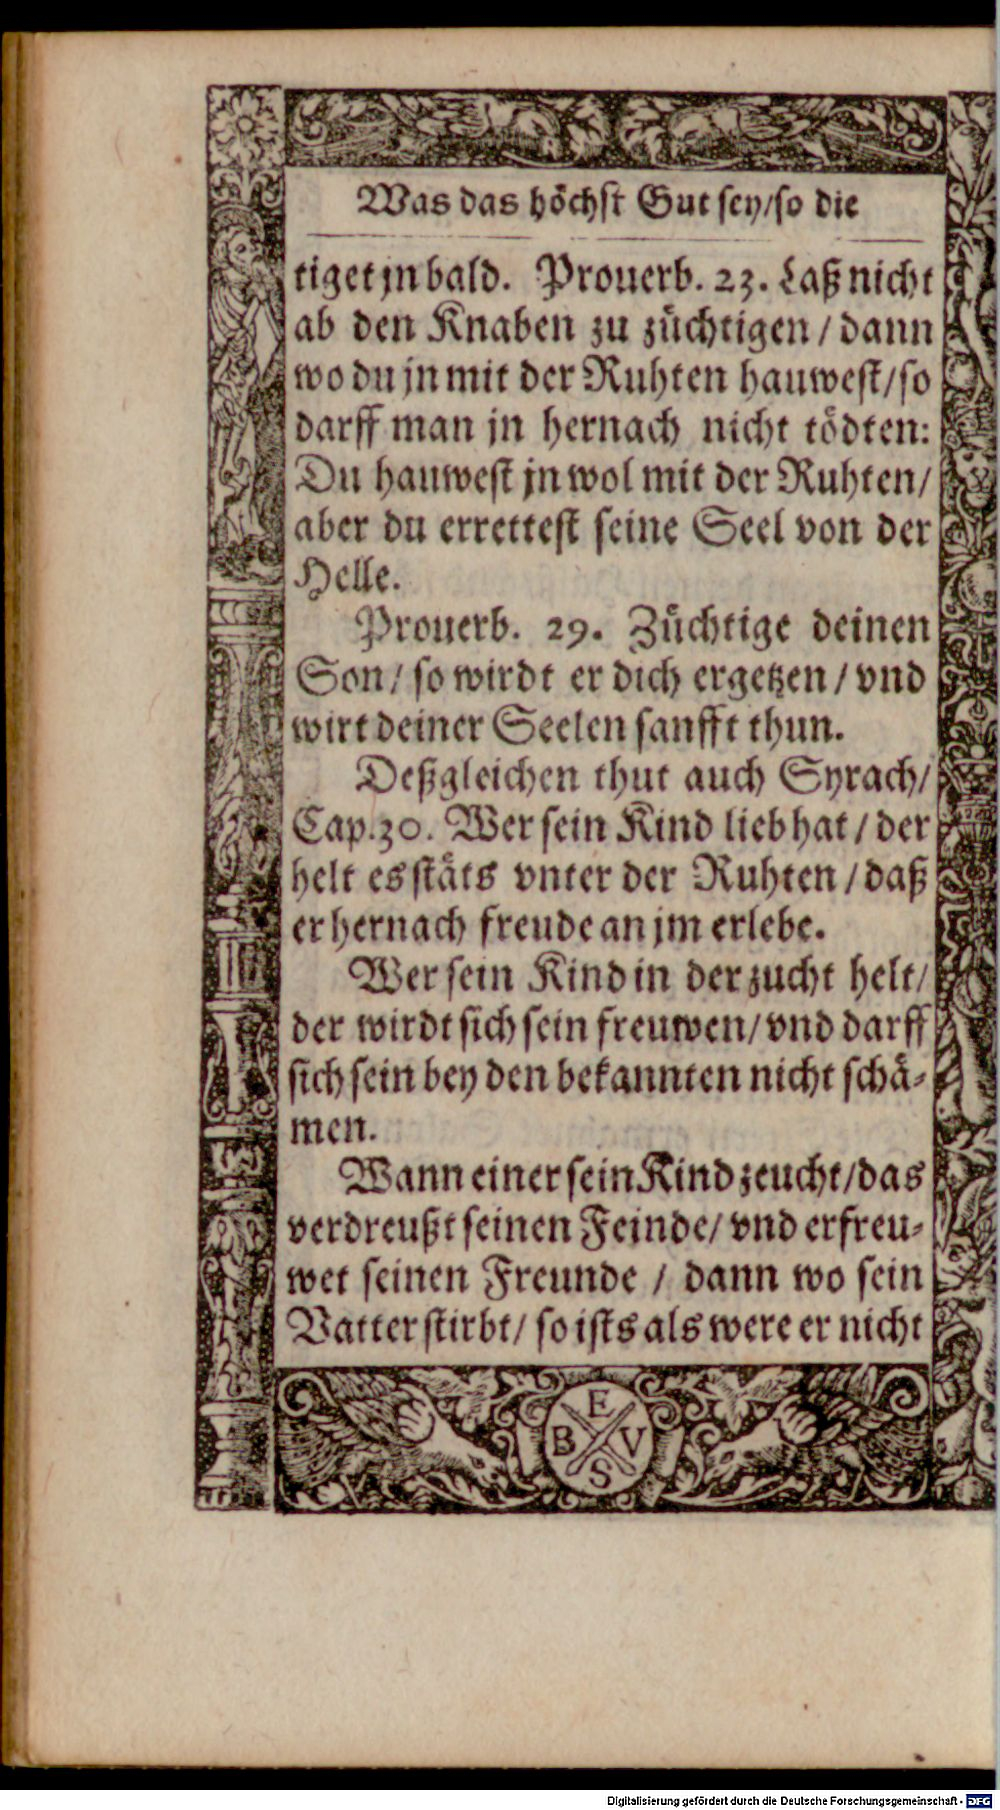 Was das höchst Gut sey/so die
tiget jn bald. Prouerb. 23. Laß nicht
ab den Knaben zu züchtigen / dann
wo du jn mit der Ruhten hauwest/so
darff man jn hernach nicht tödten:
Du hauwest jn wol mit der Ruhten/
aber du errettest seine Seel von der
Helle.
Prouerb. 29. Züchtige deinen
Son/ so wirdt er dich ergetzen / vnd
wirt deiner Seelen sanfft thun.
Deßgleichen thut auch Syrach/
Cap. 30. Wer sein Kind lieb hat / der
helt es stäts vnter der Ruhten / daß
er hernach freude an jm erlebe.
Wer sein Kind in der zucht helt/
der wirdt sich sein freuwen/ vnd darff
sich sein bey den bekannten nicht schä-
men.
Wann einer sein Kind zeucht/das
verdreußt seinen Feinde/ vnd erfreu-
wet seinen Freunde / dann wo sein
Vatter stirbt/ so ists als were er nicht
E
B V
S
Digitalisierung gefördert durch die Deutsche Forschungsgemeinschaft - DFG